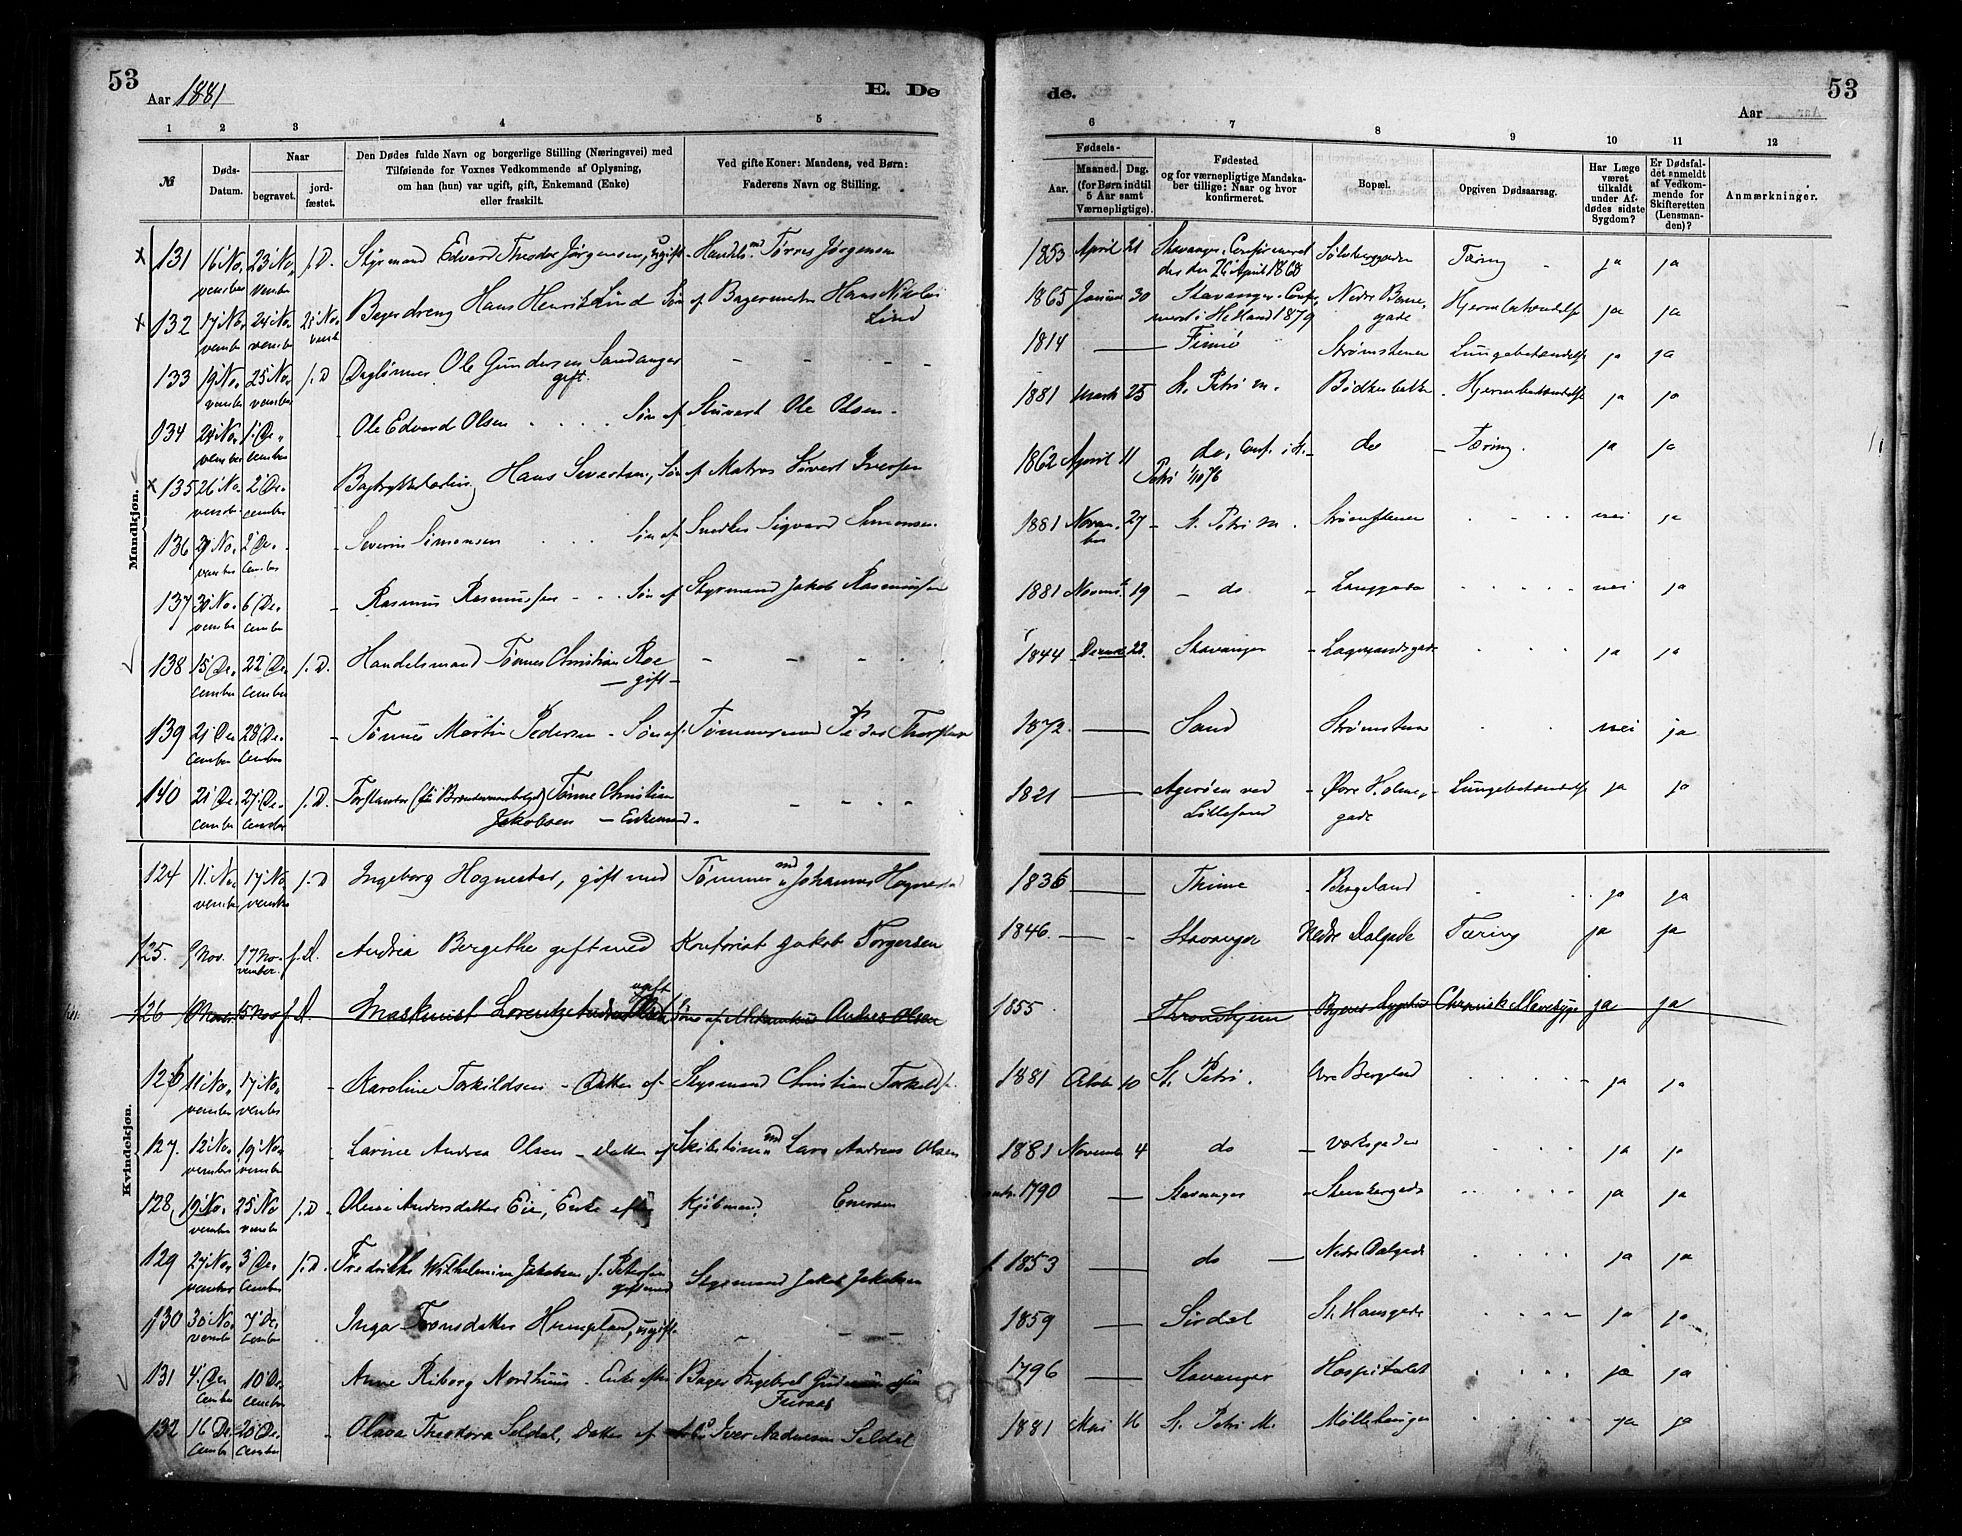 53
Aar 1881
E. Dø
de.
53
Aar
1 2 3 4 5 6 7 8 9 10 11 12
№
Døds-Datum.
Naar
begravet.
jord-fæstet.
Den Dødes fulde Navn og borgerlige Stilling (Næringsvei) med
Tilføiende for Voxnes Vedkommende af Oplysning,
om han (hun) var ugift, gift, Enkemand (Enke)
eller fraskilt.
Ved gifte Koner: Mandens, ved Børn:
Faderens Navn og Stilling.
Fødsels-
Aar.
Maaned. Dag.
(for Børn indtil
5 Aar samt
Værnepligtige).
Fødested
og for værnepligtige Mandska-
ber tillige: Naar og hvor
konfirmeret.
Bopæl.
Opgiven Dødsaarsag.
Har Læge
været
tilkaldt
under Af-
dødes sidste
Sygdom?
Er Dødsfal-
det anmeldt
af Vedkom-
mende for
Skifteretten
(Lensman-
den)?
Anmærkninger.
Mandkjøn.
131 16 November 23 November j.D. Styrmand Edvard Theodor Jørgensen, ugift - Handelsm. Tørres Jørgensen 1853 April 21 Stavanger, Confirmeret der den 26 April 1868 Tæring ja ja
132 17 November 24 November 21 November Bagerdreng Hans Henrik Lind Søn af Bagermester Hans Nikolai Lind 1865 Januar 30 Stavanger, Confirmeret i Hetland 1879 Nedre gade Hjernebetændelse ja ja
133 19 November 25 November j.D Daglønner Ole Gundersen Sandanger gift. 1814 Finnø Strømstenen Lungebetændelse ja ja
134 November 1 December Ole Edvard Olsen Søn af Stuvert Ole Olsen 1881 Marts 25 St. Petri M. Bødkerbakken Hjernebetændelse ja ja
135 26 November 2 December Hans Sivertsen, Søn af Matros Sivert Iversen 1862 April 11 do, Conf. i St. Petri 1/10 76 do Tæring. ja ja
136 November 2 December Severin Simonsen Søn af Snedker Sigvard Simonsen. 1881 November 27 St. Petri M. Strømstenen nei ja
137 30 November 6 December Rasmus Rasmussen Søn af Styrmand Jakob Rasmussen 1881 Novemb. 19 do Langgaden nei ja
138 15 December 22 December j.D. Handelsmand Tønnes Christian Roe gift 1844 22. Stavanger Lagmandsgade ja ja
139 21 December 28 December Tønnes Martin Pedersen - Søn af Tømmermand Peder 1872. Sand Strømstenen nei ja
140 21 December 27 December j.D. Tønnes Christian Jakobsen - Enkemand. 1821 Agerøen ved Lillesand Øvre Holmegade Lungebetændelse ja ja
Kvindekjøn.
124 11 November 17 November j.D Ingeborg Hognestad, gift med Tømmermd. Johannes Hognestad 1836 Thime Bergeland ja ja
125. 9 Nov. 17 November. j.D. Andrea Bergethe gift med Kontorist Jakob Torgersen 1846. Stavanger Nedre Dalgade Tæring ja ja
126 15 Nov j.D. Maskinist Lorentz Andreas Olsen ugift Søn af Andreas Olsen 1855 Throndhjem Byens Sygehus Chronisk Mavesyge ja ja
126 11 November 17 November Karoline Torkildsen - Datter af Styrmand Christian Torkilds. 1881 Oktober 10 St. Petri. Øvre Bergeland ja ja
127. 12 November 19 November Larine Andrea Olsen - datter af Skibstømmd. Lars Andreas Olsen 1881 November 4 do Værksgaden ja ja
128. 19 November 25 November j.D Olene Andersdatter Eie, Enke efter Kjøbmand, Enersen 1790 Stavanger Stenbergsgade ja ja
129 27 November 3 December j.D. Fredrikke Wilhelmine Jakobsen f. Petersen gift med Styrmand Jakob Jakobsen 1853 do Nedre Dalgade ja ja
130 30 November 7 December Inga Tronsdatter ugift. 1859 Sirdal St. Hansgade ja ja
131 4. December 10 December Anne Riborg Nordhuus - Enke efter Bager Ingebret 1796 Stavanger Hospitalet ja ja
132 16 December 20 December Olava Theodora Seldal, Datter af Iver Seldal 1881 Mai 16 St. Petri M. ja ja